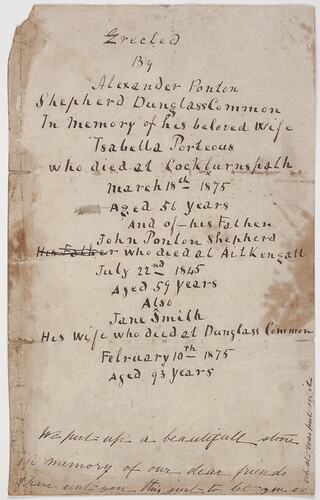 Erected
By
Alexander Ponton
Shepherd Dunglass Common
In Memory of his beloved Wife
Isabella Porteous
who died at Cockburnspath
march 18th 1875
Aged 56 years
And of his Father
John Ponton Shepherd
His Father who died at Aitkengall
July 22nd 1845
Aged 59 years
Also
Jane Smith
His Wife who died at Dunglass Common
February 10th 1875
Aged 93 years
We put up a beautifull stone
in memory of our dear friends
I have sent you this just to let you see
what was put on it